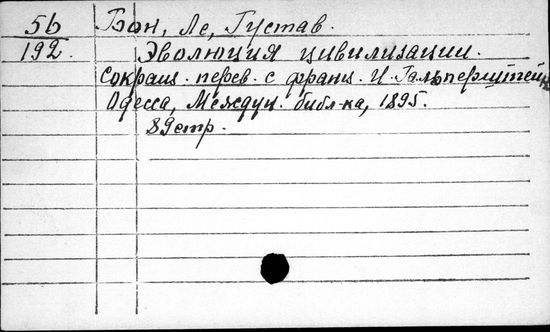 56 Бон, Ле, Густав.
192. Эволюция цивилизации.
Сокращ. перев. с франц. И. Гальперштейн
Одесса, Междун. библ-ка, 1895.
89стр.